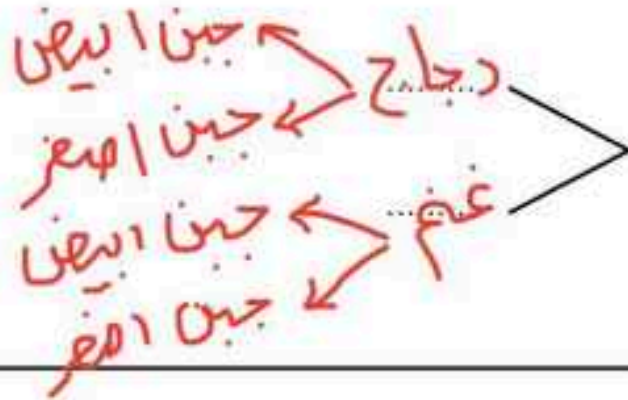 دجاج
جبن ابيض
جبن اصفر
غنم
جبن ابيض
جبن اصفر